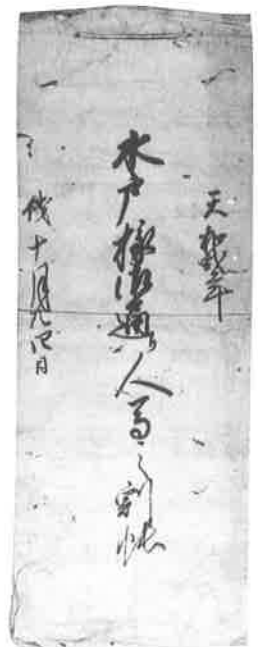 天和弐年
水戸様御通り人馬之割帳
戌十月廿四日